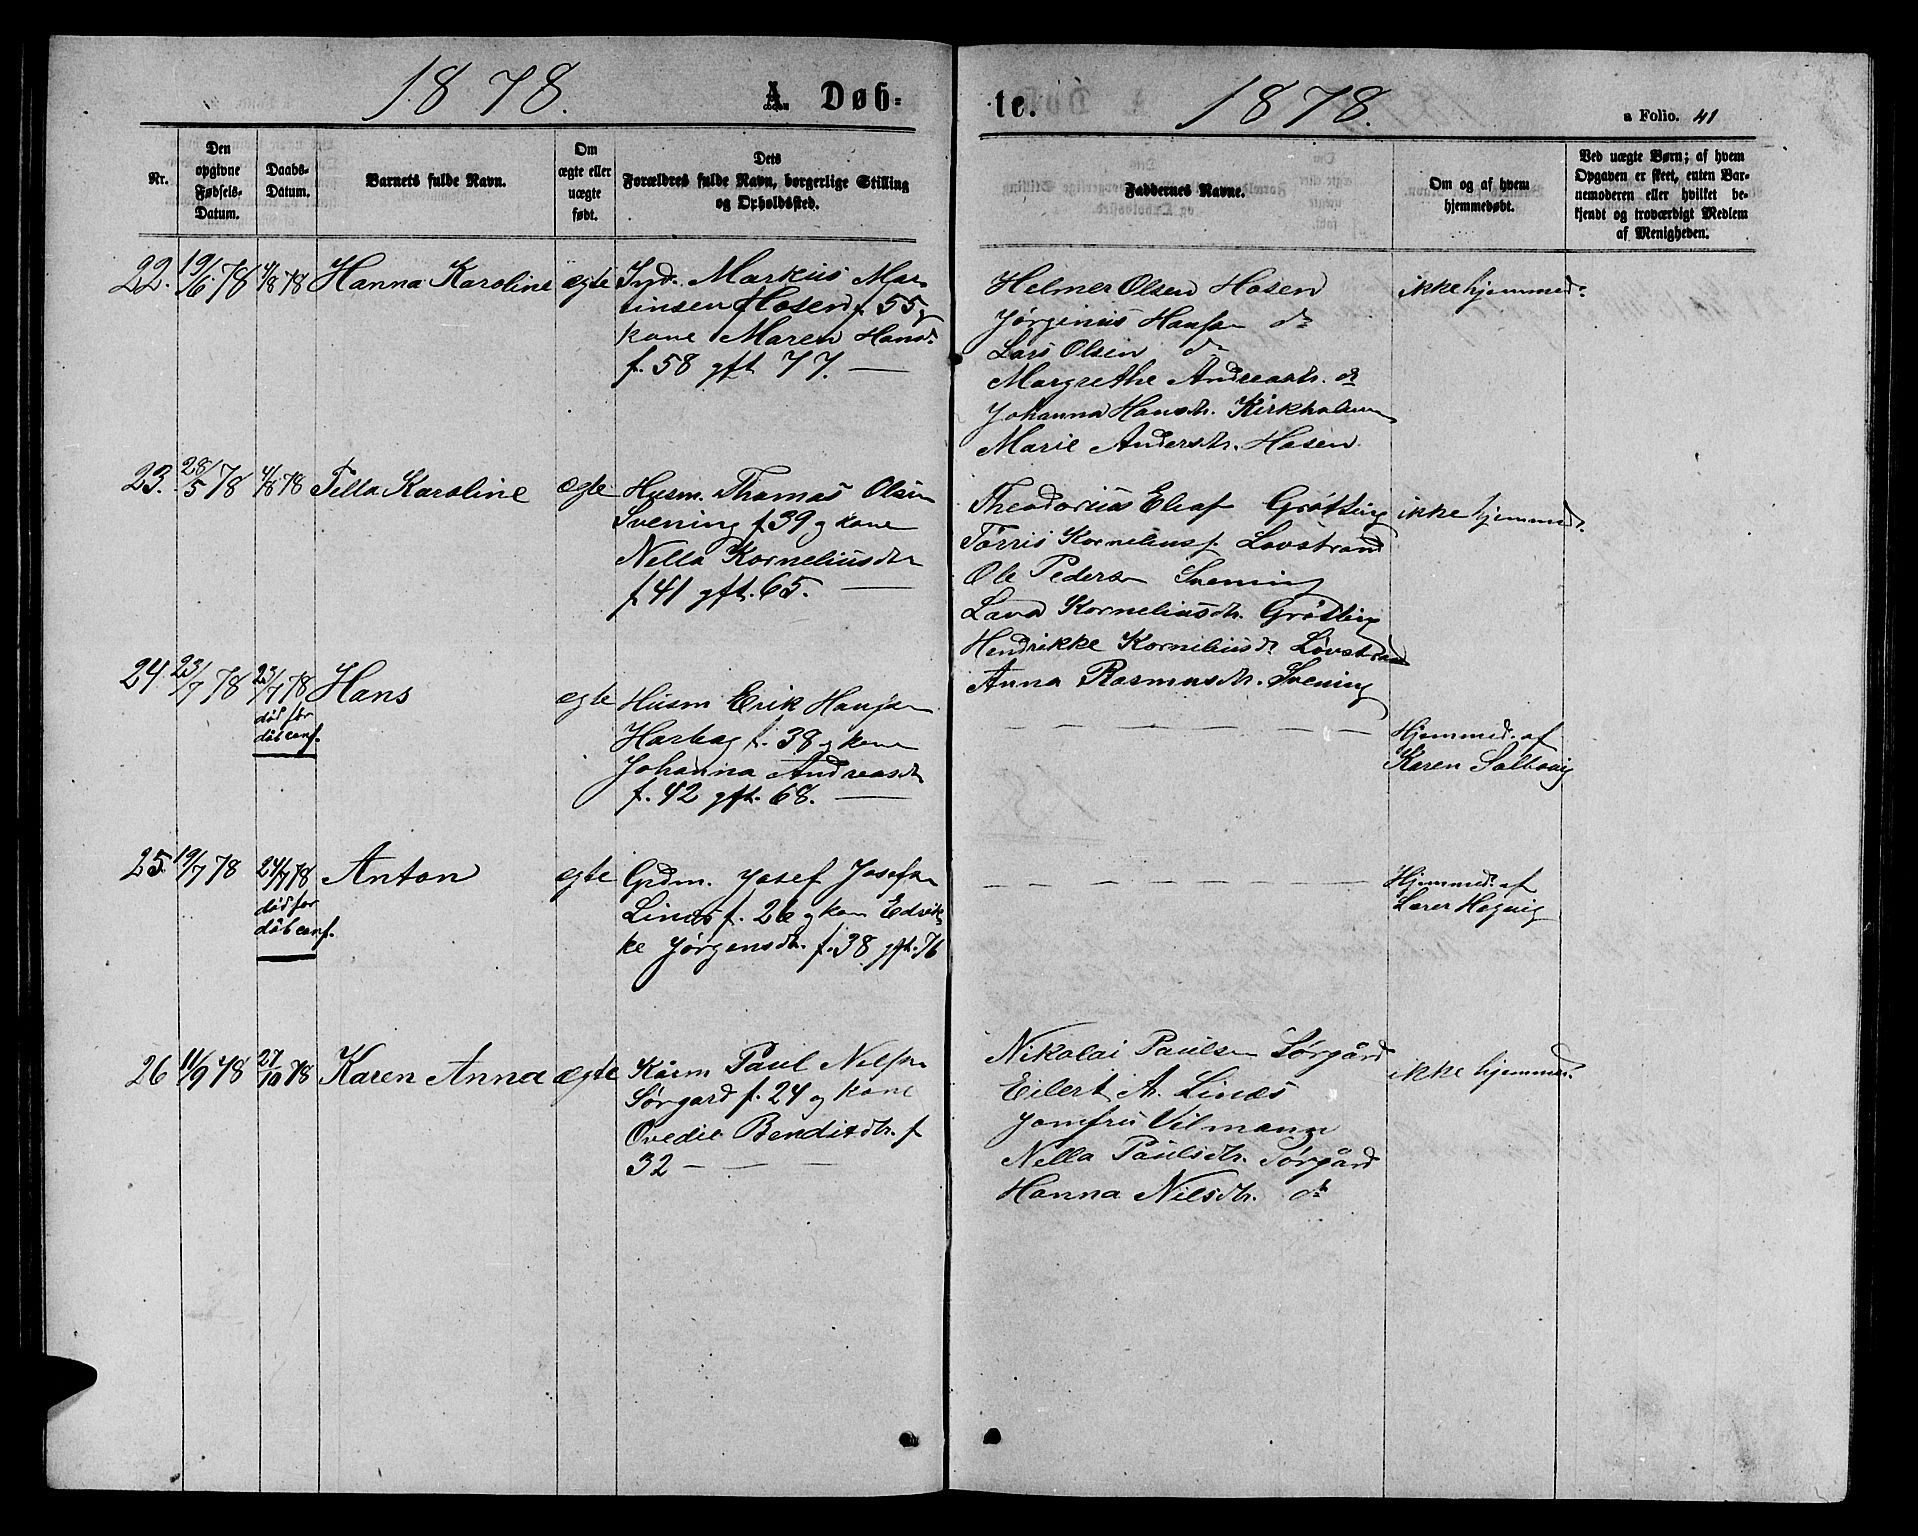 1878. A Døb=
te. 1878. a Folio. 41
Nr.
Den opgivne Fødsels-Datum.
Daabs-Datum.
Barnets fulde Navn.
Om ægte eller uægte født.
Dets Forældres fulde Navn, borgerlige Stilling og Opholdssted.
Faddernes Navne.
Om og af hvem hjemmedøbt.
Ved uægte Børn; af hvem Opgaven er skeet, enten Barnemoderen eller hvilket bekjendt og troværdigt Medlem af Menigheden.
22. 19/6 78 4/8 78 Hanna Karoline ægte Inds. Markus Mar-
tinsen Hosen f. 55 og
kone Maren Hansd.
f. 58 gft 77. —
Helmer Olsen Hosen
Jørginus Hansen do
Lars Olsen do
Margrethe Andreasdtr. do
Johanna Hansdtr. Kirkholmen
Marie Andersdtr. Hosen.
ikke hjemmed.
23. 28/5 78 4/8 78 Pella Karoline ægte Husm. Thomas Olsen
Svening f. 39 og kone
Nella Korneliusdtr
f. 41 gft. 65. —
Theodorius Elias Grøtting
Tørris Korneliuss. Lovstrand
Ole Pedersen Svening
Lava Korneliusdtr. Grøtting
Hendrikke Korneliusdtr. Løvstrand
Anna Rasmusdtr. Svening
ikke hjemmed.
24. 23/7 78 23/7 78 Hans
død før
dåbconf.
ægte Husm Erik Hansen
Harbag f. 38 og kone
Johanna Andreasdtr
f. 42 gft. 68. —
Hjemmed. af
Karen Solbovig
25. 19/7 78 24/7 78 Anton
død før
dåb conf.
ægte Grdm. Josef Josefsen
Linæs f. 26 og kone Edvik
ke Jørgensdtr. f. 38 gft. 76
Hjemmed. af
Lærer Hegvig
26 11/9 78 27/10 78 Karen Anna ægte Kårm Paul Nilssen
Sørgard f. 24 og kone
Ovedie Benditsdtr. f
32 — — —
Nikolai Paulsen Sørgård
Eilert A. Linæs
Jomfru Vilmann
Nella Paulsdtr. Sørgård
Hanna Nilsdtr. do
ikke hjemmed.